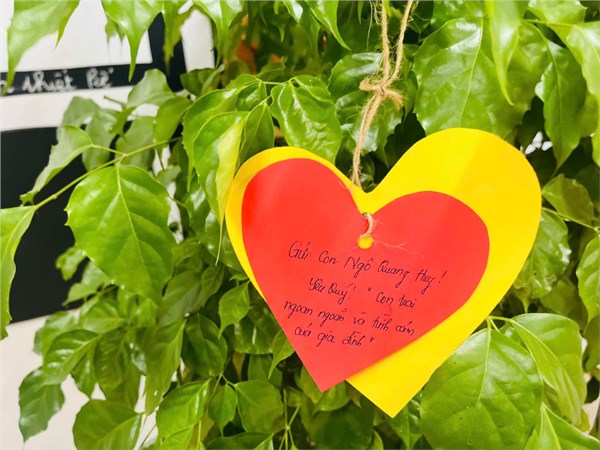 thuật Bế
Gửi Con Ngô Quang Huy!
Yêu Quý! "Con trai
ngoan ngoãn và tình cảm
của gia đình"